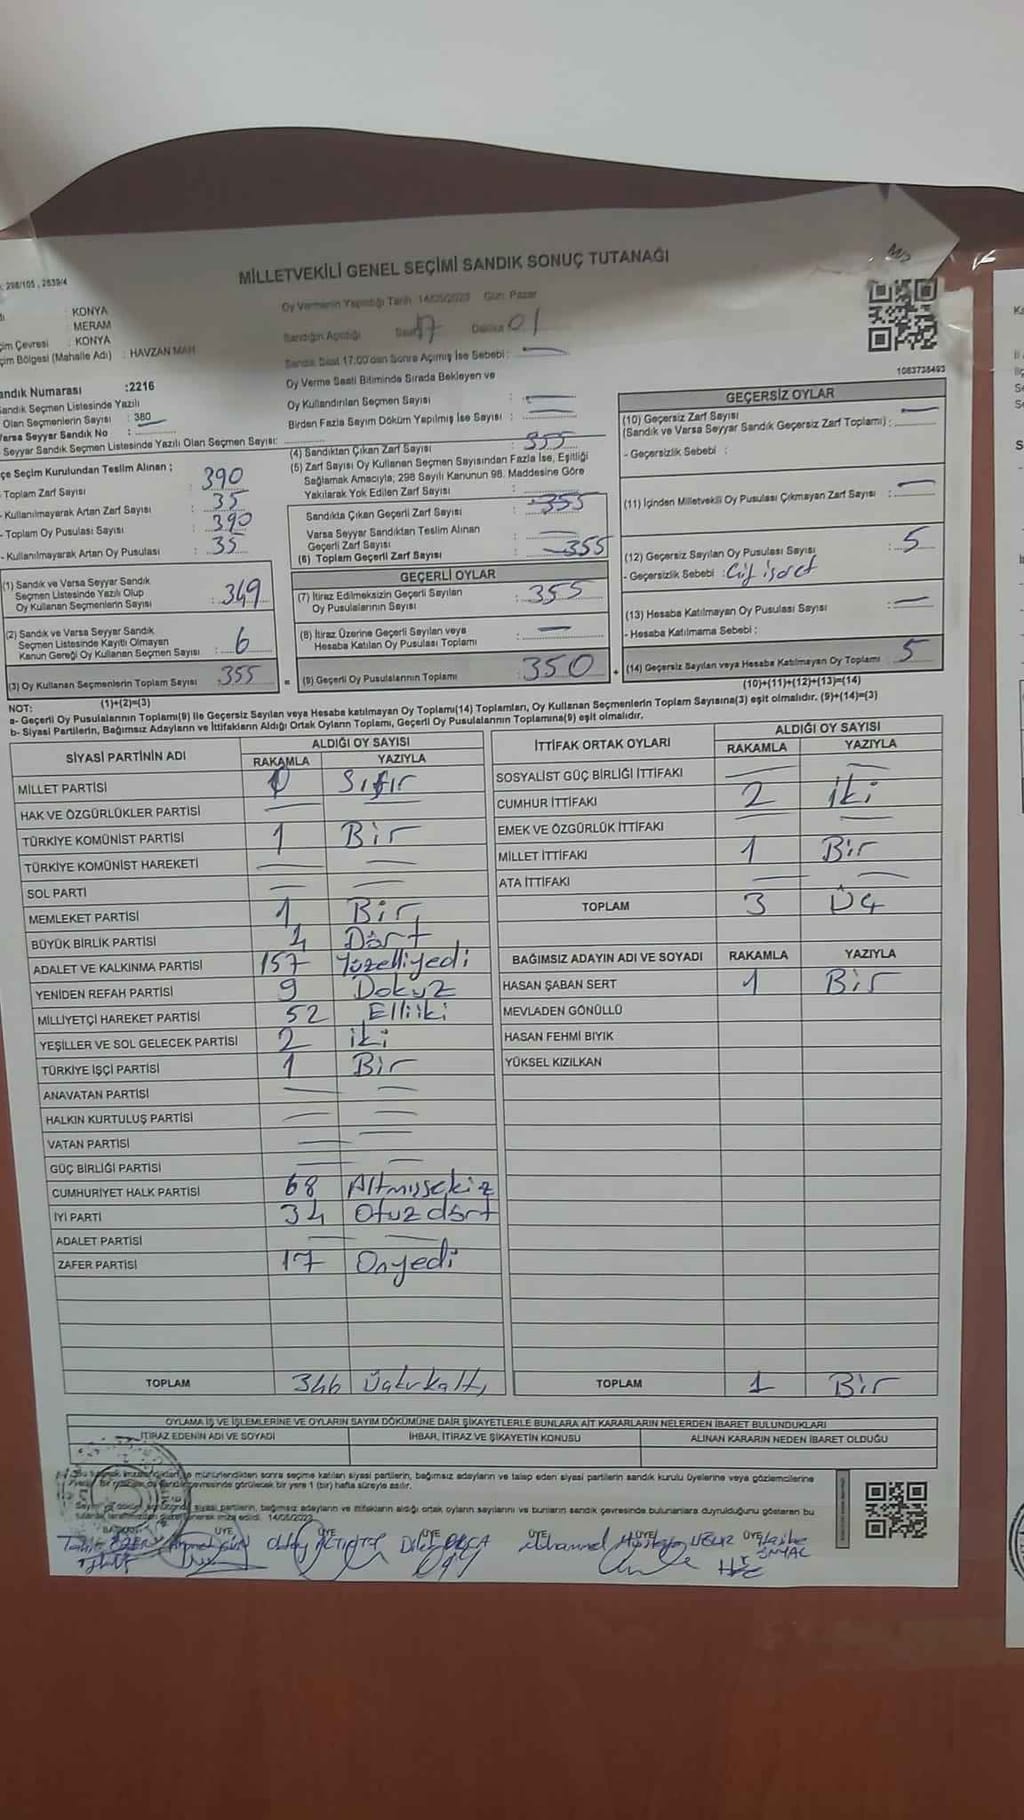 298/105 , 2839/4
M/3
MİLLETVEKİLİ GENEL SEÇİMİ SANDIK SONUÇ TUTANAĞI
: KONYA
MERAM
: KONYA
(Mahalle Adı) : HAVZAN MAH
Oy Vermenin Yapıldığı Tarih 14/05/2023 Gün: Pazar
Sandığın Açıldığı Saat 17 Dakika 01
Sandık Saat 17:00'dan Sonra Açılmış İse Sebebi : —
Oy Verme Saati Bitiminde Sırada Bekleyen ve
Oy Kullandırılan Seçmen Sayısı : —
Birden Fazla Sayım Döküm Yapılmış İse Sayısı : —
1083738493
Numarası :2216
Seçmen Listesinde Yazılı
Olan Seçmenlerin Sayısı : 380
Varsa Seyyar Sandık No :
Seyyar Sandık Seçmen Listesinde Yazılı Olan Seçmen Sayısı:
Seçim Kurulundan Teslim Alınan :
Toplam Zarf Sayısı : 390
- Kullanılmayarak Artan Zarf Sayısı : 35
- Toplam Oy Pusulası Sayısı : 390
- Kullanılmayarak Artan Oy Pusulası : 35
(1) Sandık ve Varsa Seyyar Sandık
Seçmen Listesinde Yazılı Olup
Oy Kullanan Seçmenlerin Sayısı : 349
(2) Sandık ve Varsa Seyyar Sandık
Seçmen Listesinde Kayıtlı Olmayan
Kanun Gereği Oy Kullanan Seçmen Sayısı : 6
(3) Oy Kullanan Seçmenlerin Toplam Sayısı : 355
(1)+(2)=(3)
(4) Sandıktan Çıkan Zarf Sayısı : 355
(5) Zarf Sayısı Oy Kullanan Seçmen Sayısından Fazla İse, Eşitliği
Sağlamak Amacıyla; 298 Sayılı Kanunun 98. Maddesine Göre
Yakılarak Yok Edilen Zarf Sayısı : —
Sandıkta Çıkan Geçerli Zarf Sayısı : 355
Varsa Seyyar Sandıktan Teslim Alınan
Geçerli Zarf Sayısı : —
(6) Toplam Geçerli Zarf Sayısı : 355
GEÇERLİ OYLAR
(7) İtiraz Edilmeksizin Geçerli Sayılan
Oy Pusulalarının Sayısı : 355
(8) İtiraz Üzerine Geçerli Sayılan veya
Hesaba Katılan Oy Pusulası Toplamı : —
= (9) Geçerli Oy Pusulalarının Toplamı 350
GEÇERSİZ OYLAR
(10) Geçersiz Zarf Sayısı
(Sandık ve Varsa Seyyar Sandık Geçersiz Zarf Toplamı) : —
- Geçersizlik Sebebi :
(11) İçinden Milletvekili Oy Pusulası Çıkmayan Zarf Sayısı : —
(12) Geçersiz Sayılan Oy Pusulası Sayısı : 5
- Geçersizlik Sebebi : Çif işaret
(13) Hesaba Katılmayan Oy Pusulası Sayısı : —
- Hesaba Katılmama Sebebi :
+ (14) Geçersiz Sayılan veya Hesaba Katılmayan Oy Toplamı 5
(10)+(11)+(12)+(13)=(14)
NOT:
a- Geçerli Oy Pusulalarının Toplamı(9) ile Geçersiz Sayılan veya Hesaba katılmayan Oy Toplamı(14) Toplamları, Oy Kullanan Seçmenlerin Toplam Sayısına(3) eşit olmalıdır. (9)+(14)=(3)
b- Siyasi Partilerin, Bağımsız Adayların ve İttifakların Aldığı Ortak Oyların Toplamı, Geçerli Oy Pusulalarının Toplamına(9) eşit olmalıdır.
SİYASİ PARTİNİN ADI ALDIĞI OY SAYISI
RAKAMLA YAZIYLA
MİLLET PARTİSİ 0 Sıfır
HAK VE ÖZGÜRLÜKLER PARTİSİ — —
TÜRKİYE KOMÜNİST PARTİSİ 1 Bir
TÜRKİYE KOMÜNİST HAREKETİ — —
SOL PARTİ — —
MEMLEKET PARTİSİ 1 Bir
BÜYÜK BİRLİK PARTİSİ 4 Dört
ADALET VE KALKINMA PARTİSİ 157 Yüzelliyedi
YENİDEN REFAH PARTİSİ 9 Dokuz
MİLLİYETÇİ HAREKET PARTİSİ 52 Elliiki
YEŞİLLER VE SOL GELECEK PARTİSİ 2 iki
TÜRKİYE İŞÇİ PARTİSİ 1 Bir
ANAVATAN PARTİSİ — —
HALKIN KURTULUŞ PARTİSİ — —
VATAN PARTİSİ — —
GÜÇ BİRLİĞİ PARTİSİ — —
CUMHURİYET HALK PARTİSİ 68 Altmışsekiz
İYİ PARTİ 34 Otuzdört
ADALET PARTİSİ — —
ZAFER PARTİSİ 17 Onyedi
TOPLAM 346
İTTİFAK ORTAK OYLARI ALDIĞI OY SAYISI
RAKAMLA YAZIYLA
SOSYALİST GÜÇ BİRLİĞİ İTTİFAKI — —
CUMHUR İTTİFAKI 2 iki
EMEK VE ÖZGÜRLÜK İTTİFAKI — —
MİLLET İTTİFAKI 1 Bir
ATA İTTİFAKI — —
TOPLAM 3 Üç
BAĞIMSIZ ADAYIN ADI VE SOYADI RAKAMLA YAZIYLA
HASAN ŞABAN SERT 1 Bir
MEVLADEN GÖNÜLLÜ
HASAN FEHMİ BIYIK
YÜKSEL KIZILKAN
TOPLAM 1 Bir
OYLAMA İŞ VE İŞLEMLERİNE VE OYLARIN SAYIM DÖKÜMÜNE DAİR ŞİKAYETLERLE BUNLARA AİT KARARLARIN NELERDEN İBARET BULUNDUKLARI
İTİRAZ EDENİN ADI VE SOYADI İHBAR, İTİRAZ VE ŞİKAYETİN KONUSU ALINAN KARARIN NEDEN İBARET OLDUĞU
mühürlendikten sonra seçime katılan siyasi partilerin, bağımsız adayların ve talep eden siyasi partilerin sandık kurulu üyelerine veya gözlemcilerine
çevresinde görülecek bir yere 1 (bir) hafta süreyle asılır.
siyasi partilerin, bağımsız adayların ve ittifakların aldığı ortak oyların sayılarını ve bunların sandık çevresinde bulunanlara duyrulduğunu gösteren bu
imza edildi. 14/05/2023
BAŞKAN ÜYE ÜYE ÜYE ÜYE ÜYE ÜYE